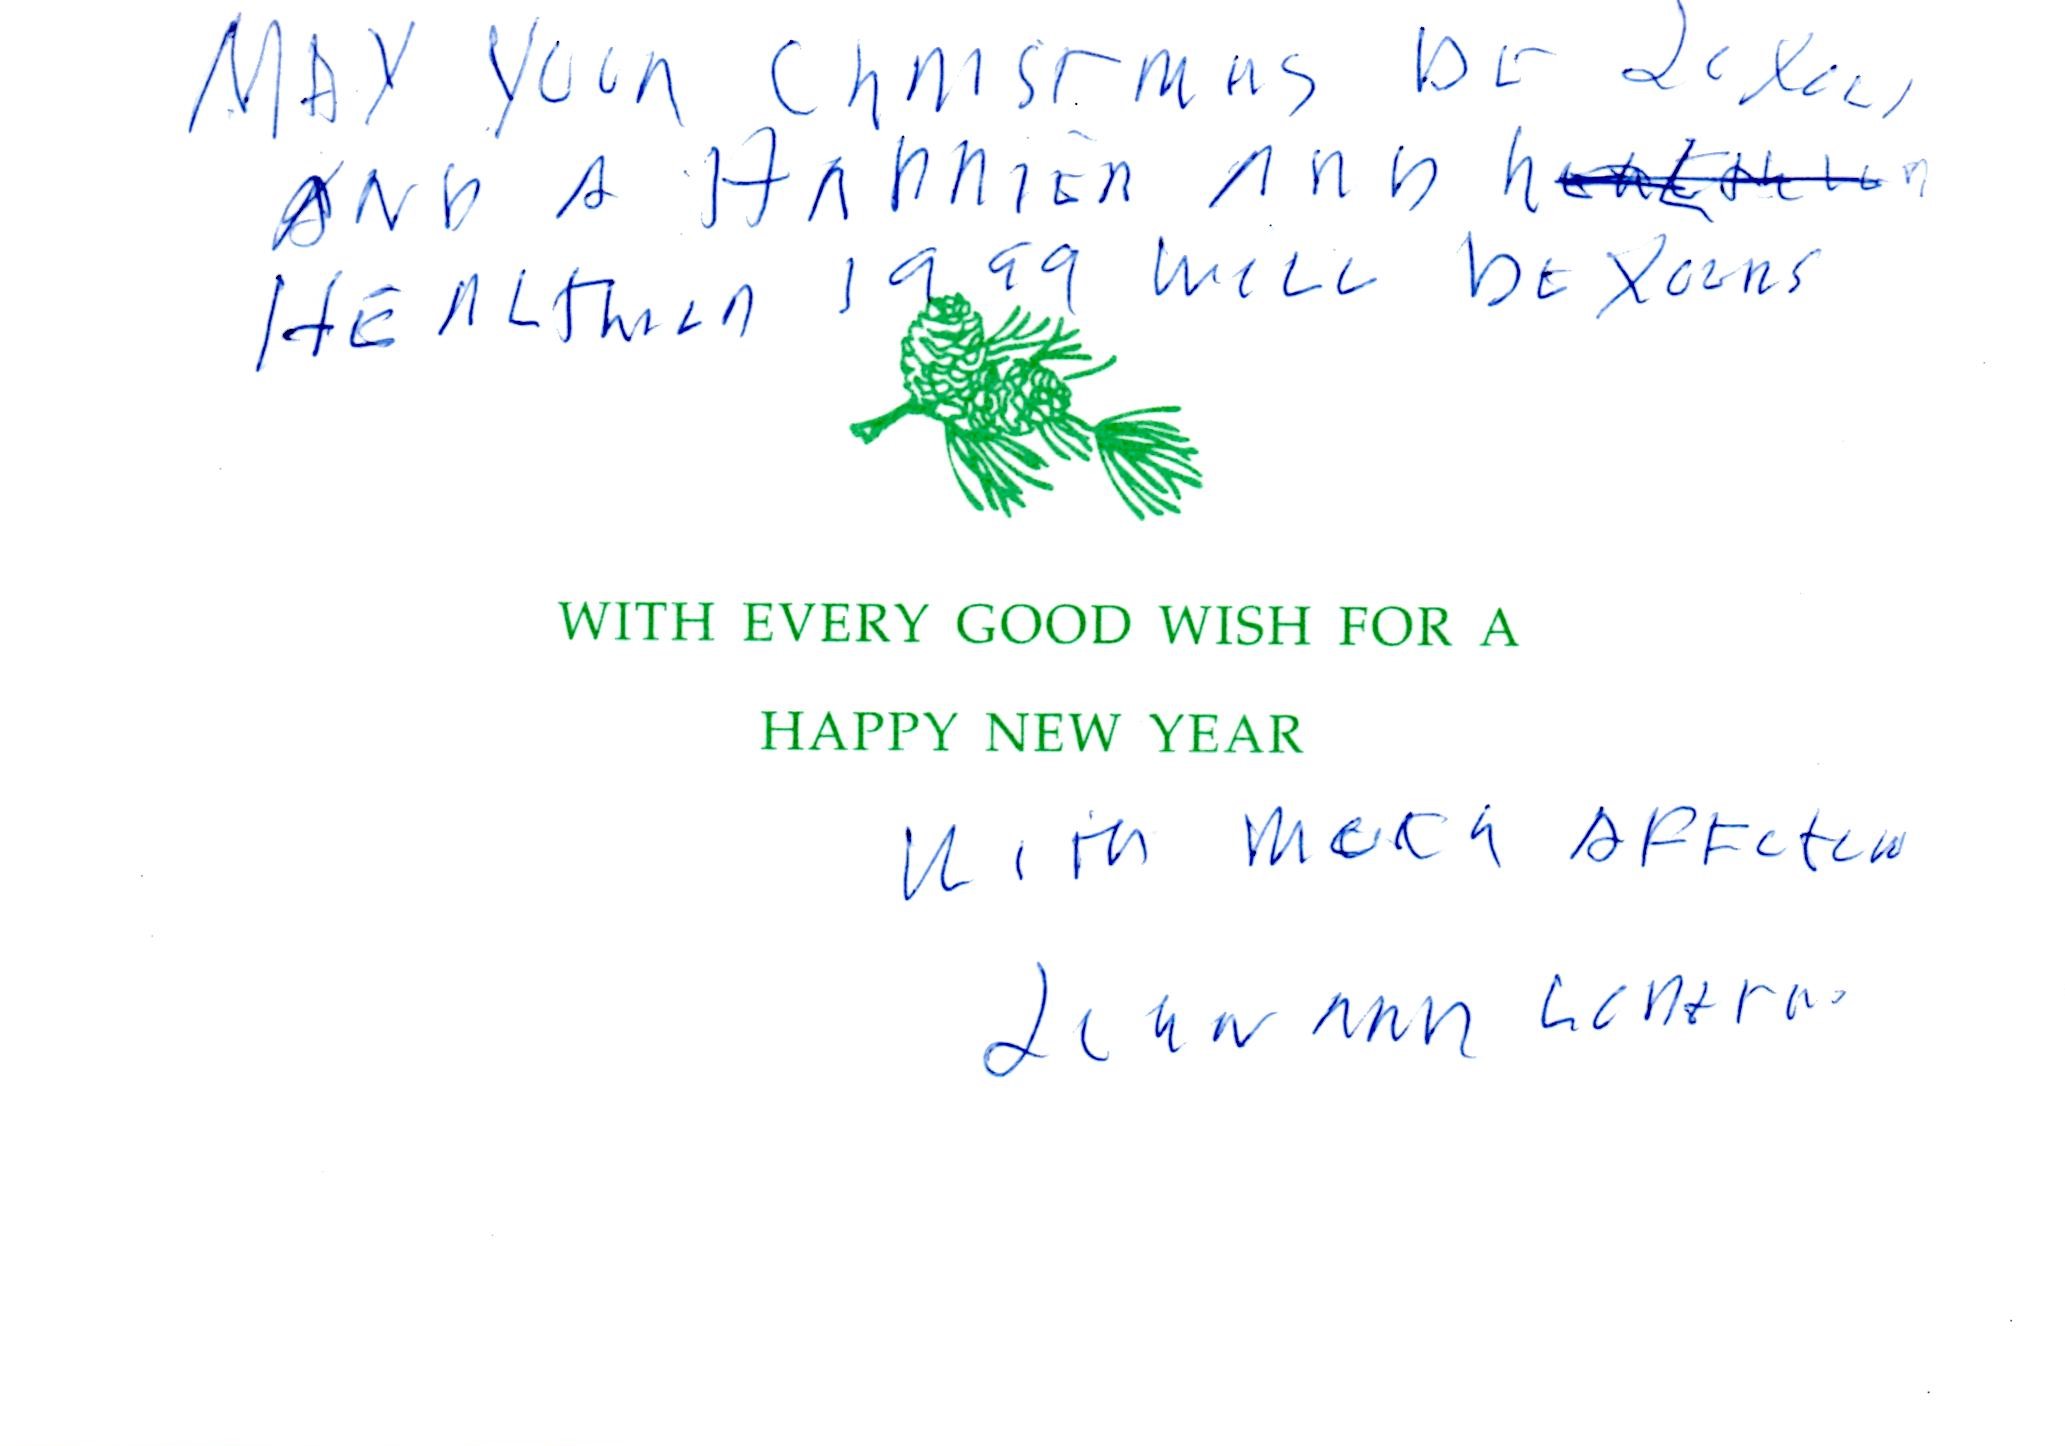 MAY YOUR ChRISTMAS BE JOYOUS
AND A HAPPIER AND
HEALTHIER 1999 WILL BE YOURS
WITH EVERY GOOD WISH FOR A
HAPPY NEW YEAR
WITH MUCH AFFECTION